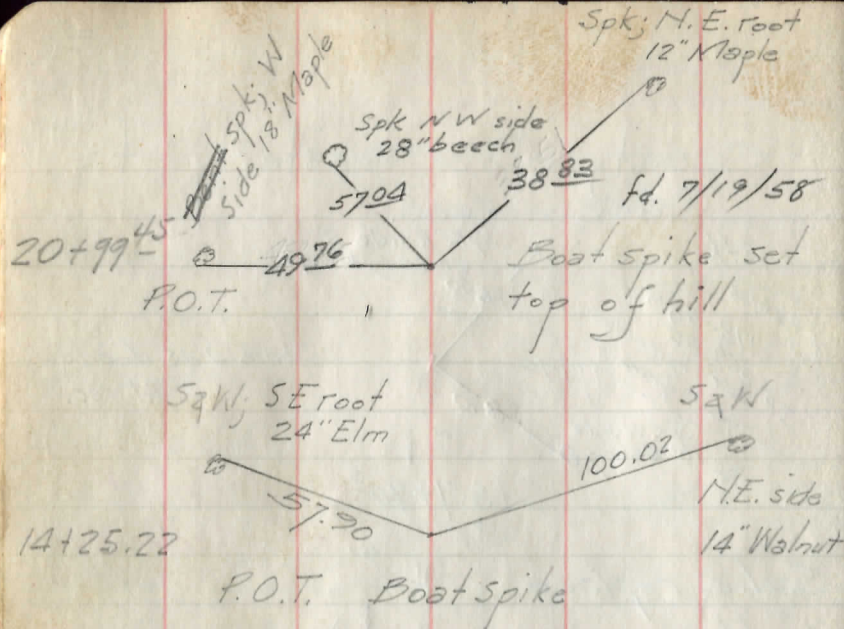 Spk; N.E. root
12" Maple
Spk; W
side 18" Maple
Spk NW side
28" beech
57 04
38 83
fd. 7/19/58
20+99 45
49 76
Boat spike set
P.O.T.
top of hill
S&W; SE root
24" Elm
S&W
100.02
57.90
N.E. side
14+25.22
14" Walnut
P.O.T. Boat spike